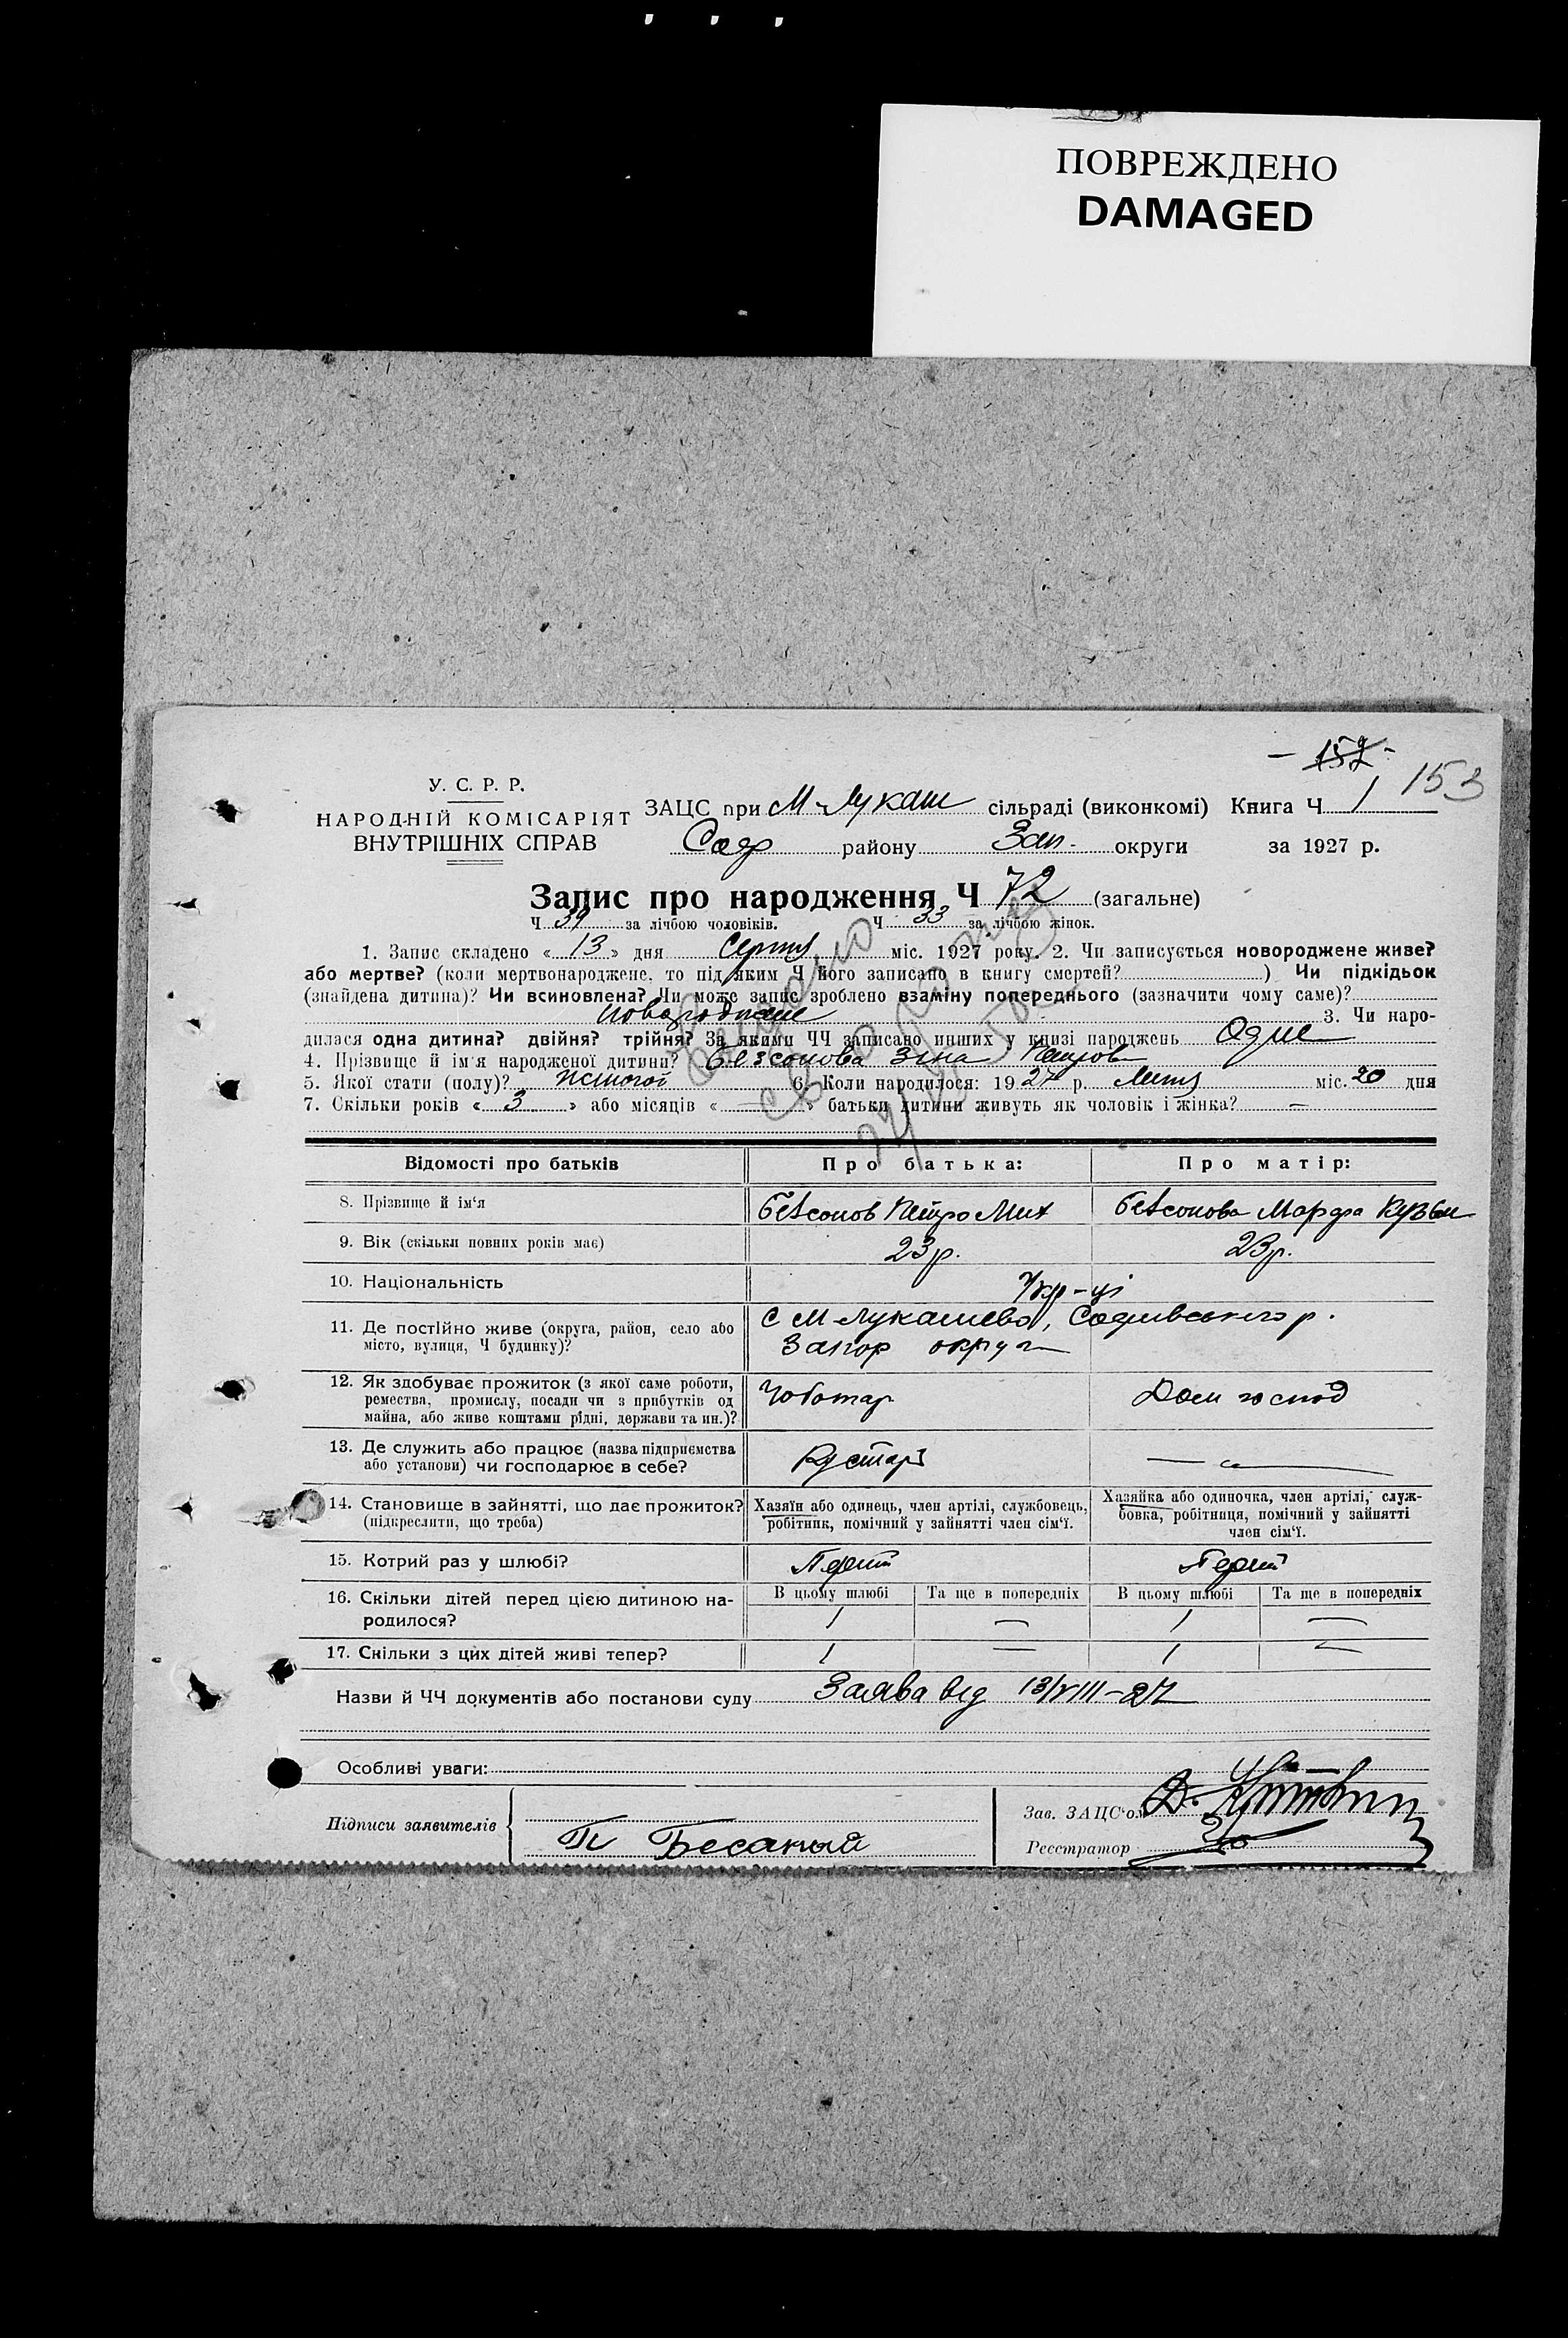 ПОВРЕЖДЕНО
DAMAGED
- 152 -
153
У. С. Р. Р.
НАРОДНІЙ КОМІСАРІЯТ
ВНУТРІШНІХ СПРАВ
ЗАЦС при М-Лукаш сільраді (виконкомі) Книга Ч 1
Соф району Зап- округи за 1927 р.
Запис про народження Ч 72 (загальне)
Ч 39 за лічбою чоловіків. Ч 33 за лічбою жінок.
1. Запис складено « 13 » дня Серпня міс. 1927 року. 2. Чи записується новороджене живе?
або мертве? (коли мертвонароджене, то під яким Ч його записано в книгу смертей? ) Чи підкідьок
(знайдена дитина)? Чи всиновлена? Чи може запис зроблено взаміну попереднього (зазначити чому саме)?
3. Чи наро-
дилася одна дитина? двійня? трійня? За якими ЧЧ записано инших у книзі народжень Одне
4. Прізвище й ім'я народженої дитини? Безсонова Зіна Петров
5. Якої стати (полу)? жіночої 6. Коли народилося: 1927 р. Липня міс. 20 дня
7. Скільки років « 3 » або місяців « — » батьки дитини живуть як чоловік і жінка? —
Відомості про батьків Про батька: Про матір:
8. Прізвище й ім'я Безсонов Петро Мих Безсонова Марфа Кузьм
9. Вік (скільки повних років має) 23 р. 23 р.
10. Національність Укр-ці
11. Де постійно живе (округа, район, село або місто, вулиця, Ч будинку)? С М-Лукашево, Софиевського р.
Запор округи
12. Як здобуває прожиток (з якої саме роботи, Чоботар Дом господ
ремества, промислу, посади чи з прибутків од
майна, або живе коштами рідні, держави та ин.)?
13. Де служить або працює (назва підприємства Кустарь —
або установи) чи господарює в себе?
14. Становище в зайнятті, що дає прожиток? Хазяїн або одинець, член артілі, службовець, Хазяйка або одиночка, член артілі, служ-
(підкреслити, що треба) робітник, помічний у зайнятті член сім'ї. бовка, робітниця, помічний у зайнятті
член сім'ї.
15. Котрий раз у шлюбі? Перший Перший
16. Скільки дітей перед цією дитиною на- В цьому шлюбі Та ще в попередніх В цьому шлюбі Та ще в попередніх
родилося? 1 — 1 —
17. Скільки з цих дітей живі тепер? 1 — 1 —
Назви й ЧЧ документів або постанови суду Заява від 13/VIII-27
Особливі уваги:
Підписи заявителів
Зав. ЗАЦС'ом
Реєстратор